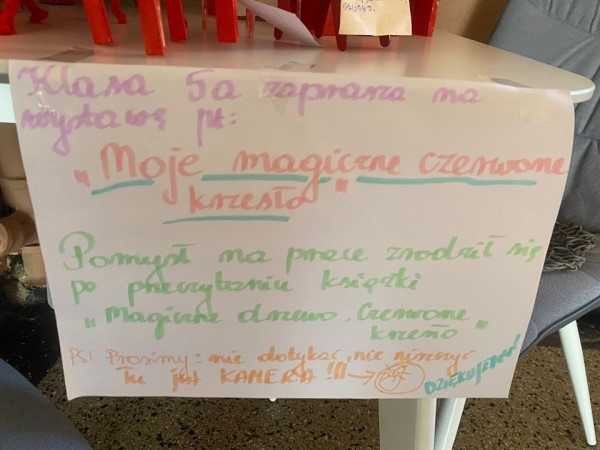 Klasa 5a zaprasza na
wystawę pt:
„Moje magiczne czerwone
krzesło"
Pomysł na pracę zrodził się
po przeczytaniu książki
„Magiczne drzewo. Czerwone
krzesło"
PS! Prosimy: nie dotykać, nie niszczyć
Tu jest KAMERA!!!
DZIĘKUJEMY!